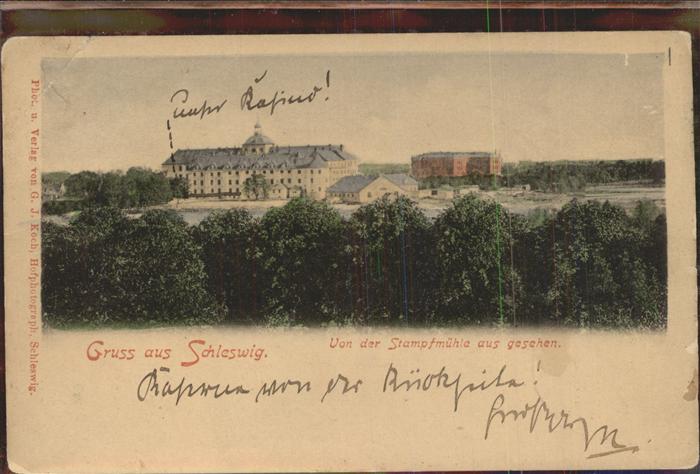 unser Kasino!
Phot. u. Verlag von G. J. Koch, Hofphotograph, Schleswig.
Gruss aus Schleswig.
Von der Stampfmühle aus gesehen.
Kaserne von der Rückseite!